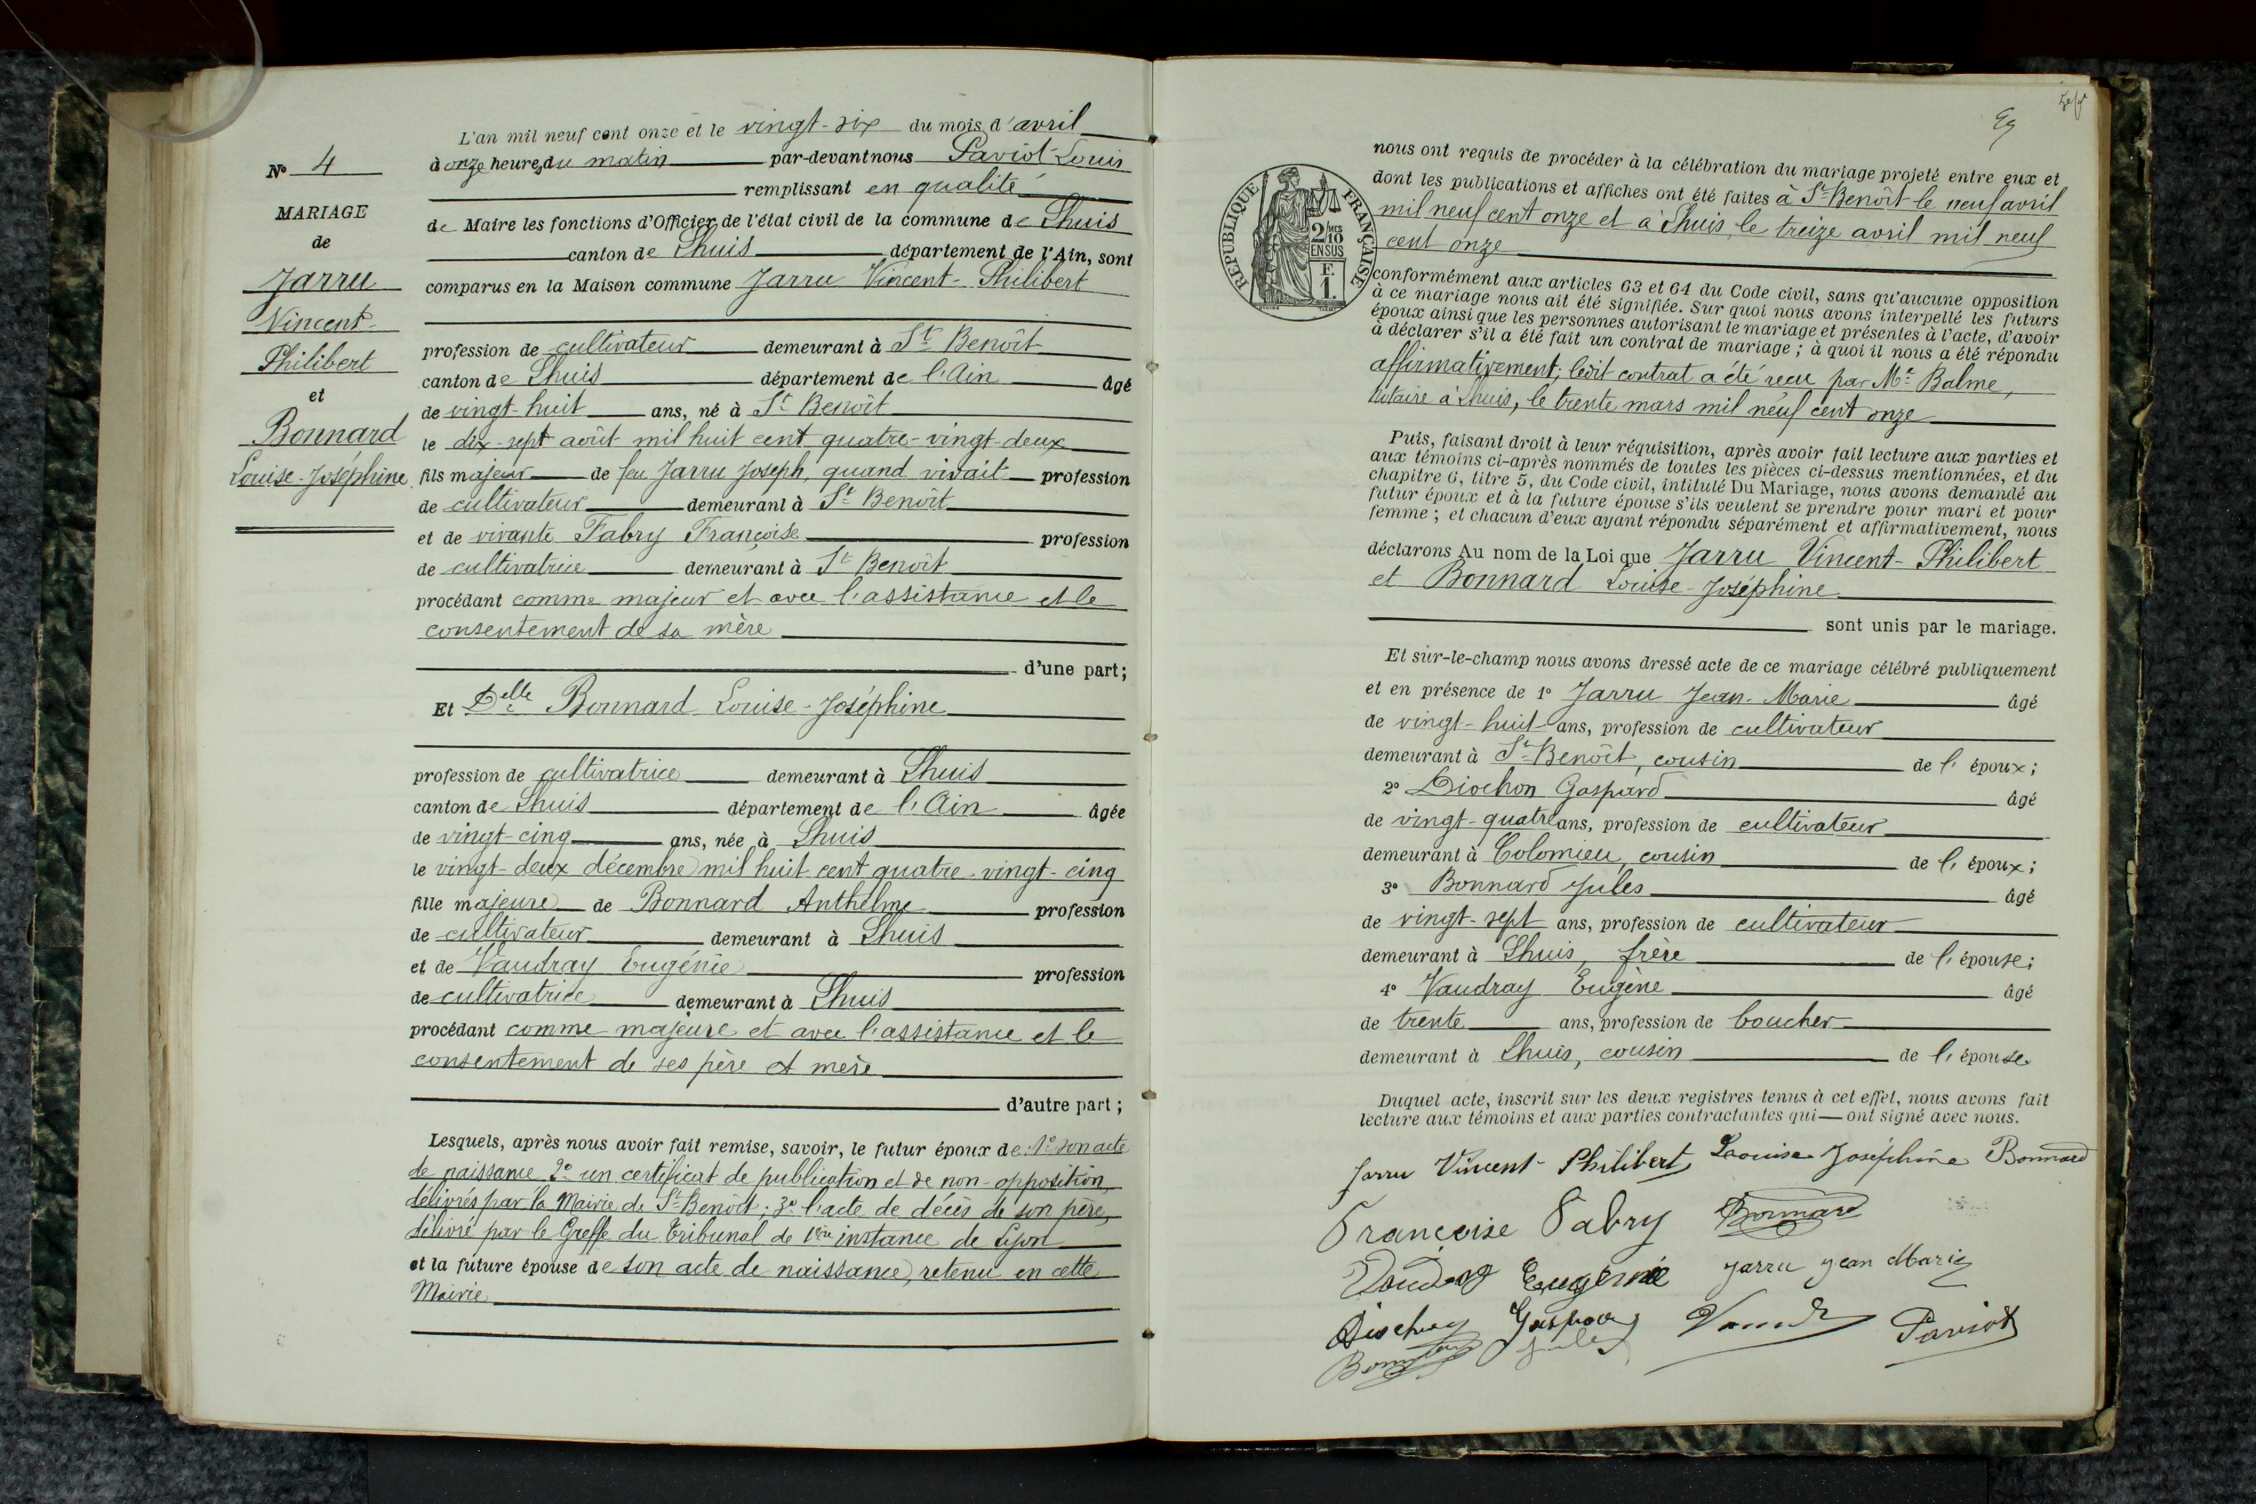 L'an mil neuf cent onze et le vingt-six du mois d'avril
à onze heures du matin par-devant nous Paviot Louis
remplissant en qualité
de Maire les fonctions d'Officier de l'état civil de la commune de Lhuis
canton de Lhuis département de l'Ain, sont
comparus en la Maison commune Jarru Vincent-Philibert
profession de cultivateur demeurant à St Benoît
canton de Lhuis département de l'Ain âgé
de vingt-huit ans, né à St Benoît
le dix-sept août mil huit cent quatre-vingt-deux
fils majeur de feu Jarru Joseph, quand vivait profession
de cultivateur demeurant à St Benoît
et de vivante Fabry Françoise profession
de cultivatrice demeurant à St Benoît
procédant comme majeur et avec l'assistance et le
consentement de sa mère
d'une part;
Et Delle Bonnard Louise-Joséphine
profession de cultivatrice demeurant à Lhuis
canton de Lhuis département de l'Ain âgée
de vingt-cinq ans, née à Lhuis
le vingt-deux décembre mil huit cent quatre-vingt-cinq
fille majeure de Bonnard Anthelme profession
de cultivateur demeurant à Lhuis
et de Vaudray Eugénie profession
de cultivatrice demeurant à Lhuis
procédant comme majeure et avec l'assistance et le
consentement de ses père et mère
d'autre part;
Lesquels, après nous avoir fait remise, savoir, le futur époux de: 1º son acte
de naissance 2º un certificat de publication et de non-opposition,
délivrés par la Mairie de St Benoît; 3º l'acte de décès de son père,
délivré par le Greffe du Tribunal de 1ère instance de Lyon
et la future épouse de son acte de naissance, retenu en cette
Mairie
Nº 4
MARIAGE
de
Jarru
Vincent-
Philibert
et
Bonnard
Louise-Joséphine
RÉPUBLIQUE FRANÇAISE
2/10 MES
EN SUS
F.
1.
nous ont requis de procéder à la célébration du mariage projeté entre eux et
dont les publications et affiches ont été faites à St Benoît le neuf avril
mil neuf cent onze et à Lhuis, le treize avril mil neuf
cent onze
conformément aux articles 63 et 64 du Code civil, sans qu'aucune opposition
à ce mariage nous ait été signifiée. Sur quoi nous avons interpellé les futurs
époux ainsi que les personnes autorisant le mariage et présentes à l'acte, d'avoir
à déclarer s'il a été fait un contrat de mariage; à quoi il nous a été répondu
affirmativement; ledit contrat a été reçu par Me Balme,
notaire à Lhuis, le trente mars mil neuf cent onze
Puis, faisant droit à leur réquisition, après avoir fait lecture aux parties et
aux témoins ci-après nommés de toutes les pièces ci-dessus mentionnées, et du
chapitre 6, titre 5, du Code civil, intitulé Du Mariage, nous avons demandé au
futur époux et à la future épouse s'ils veulent se prendre pour mari et pour
femme; et chacun d'eux ayant répondu séparément et affirmativement, nous
déclarons Au nom de la Loi que Jarru Vincent-Philibert
et Bonnard Louise-Joséphine
sont unis par le mariage.
Et sur-le-champ nous avons dressé acte de ce mariage célébré publiquement
et en présence de 1º Jarru Jean-Marie âgé
de vingt-huit ans, profession de cultivateur
demeurant à St Benoît, cousin de l'époux;
2º Diochon Gaspard âgé
de vingt-quatre ans, profession de cultivateur
demeurant à Colomieu, cousin de l'époux;
3º Bonnard Jules âgé
de vingt-sept ans, profession de cultivateur
demeurant à Lhuis, frère de l'épouse;
4º Vaudray Eugène âgé
de trente ans, profession de boucher
demeurant à Lhuis, cousin de l'épouse
Duquel acte, inscrit sur les deux registres tenus à cet effet, nous avons fait
lecture aux témoins et aux parties contractantes qui ont signé avec nous.
Jarru Vincent-Philibert Louise Joséphine Bonnard
Françoise Fabry Bonnard
Eugénie Jarru Jean Marie
Paviot